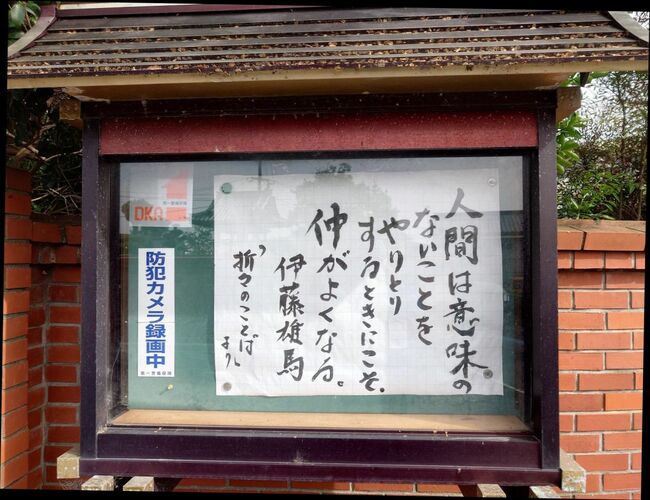 人間は意味の
ないことを
やりとり
するときにこそ、
仲がよくなる。
伊藤雄馬
「折々のことば」より
DKA
防犯カメラ録画中